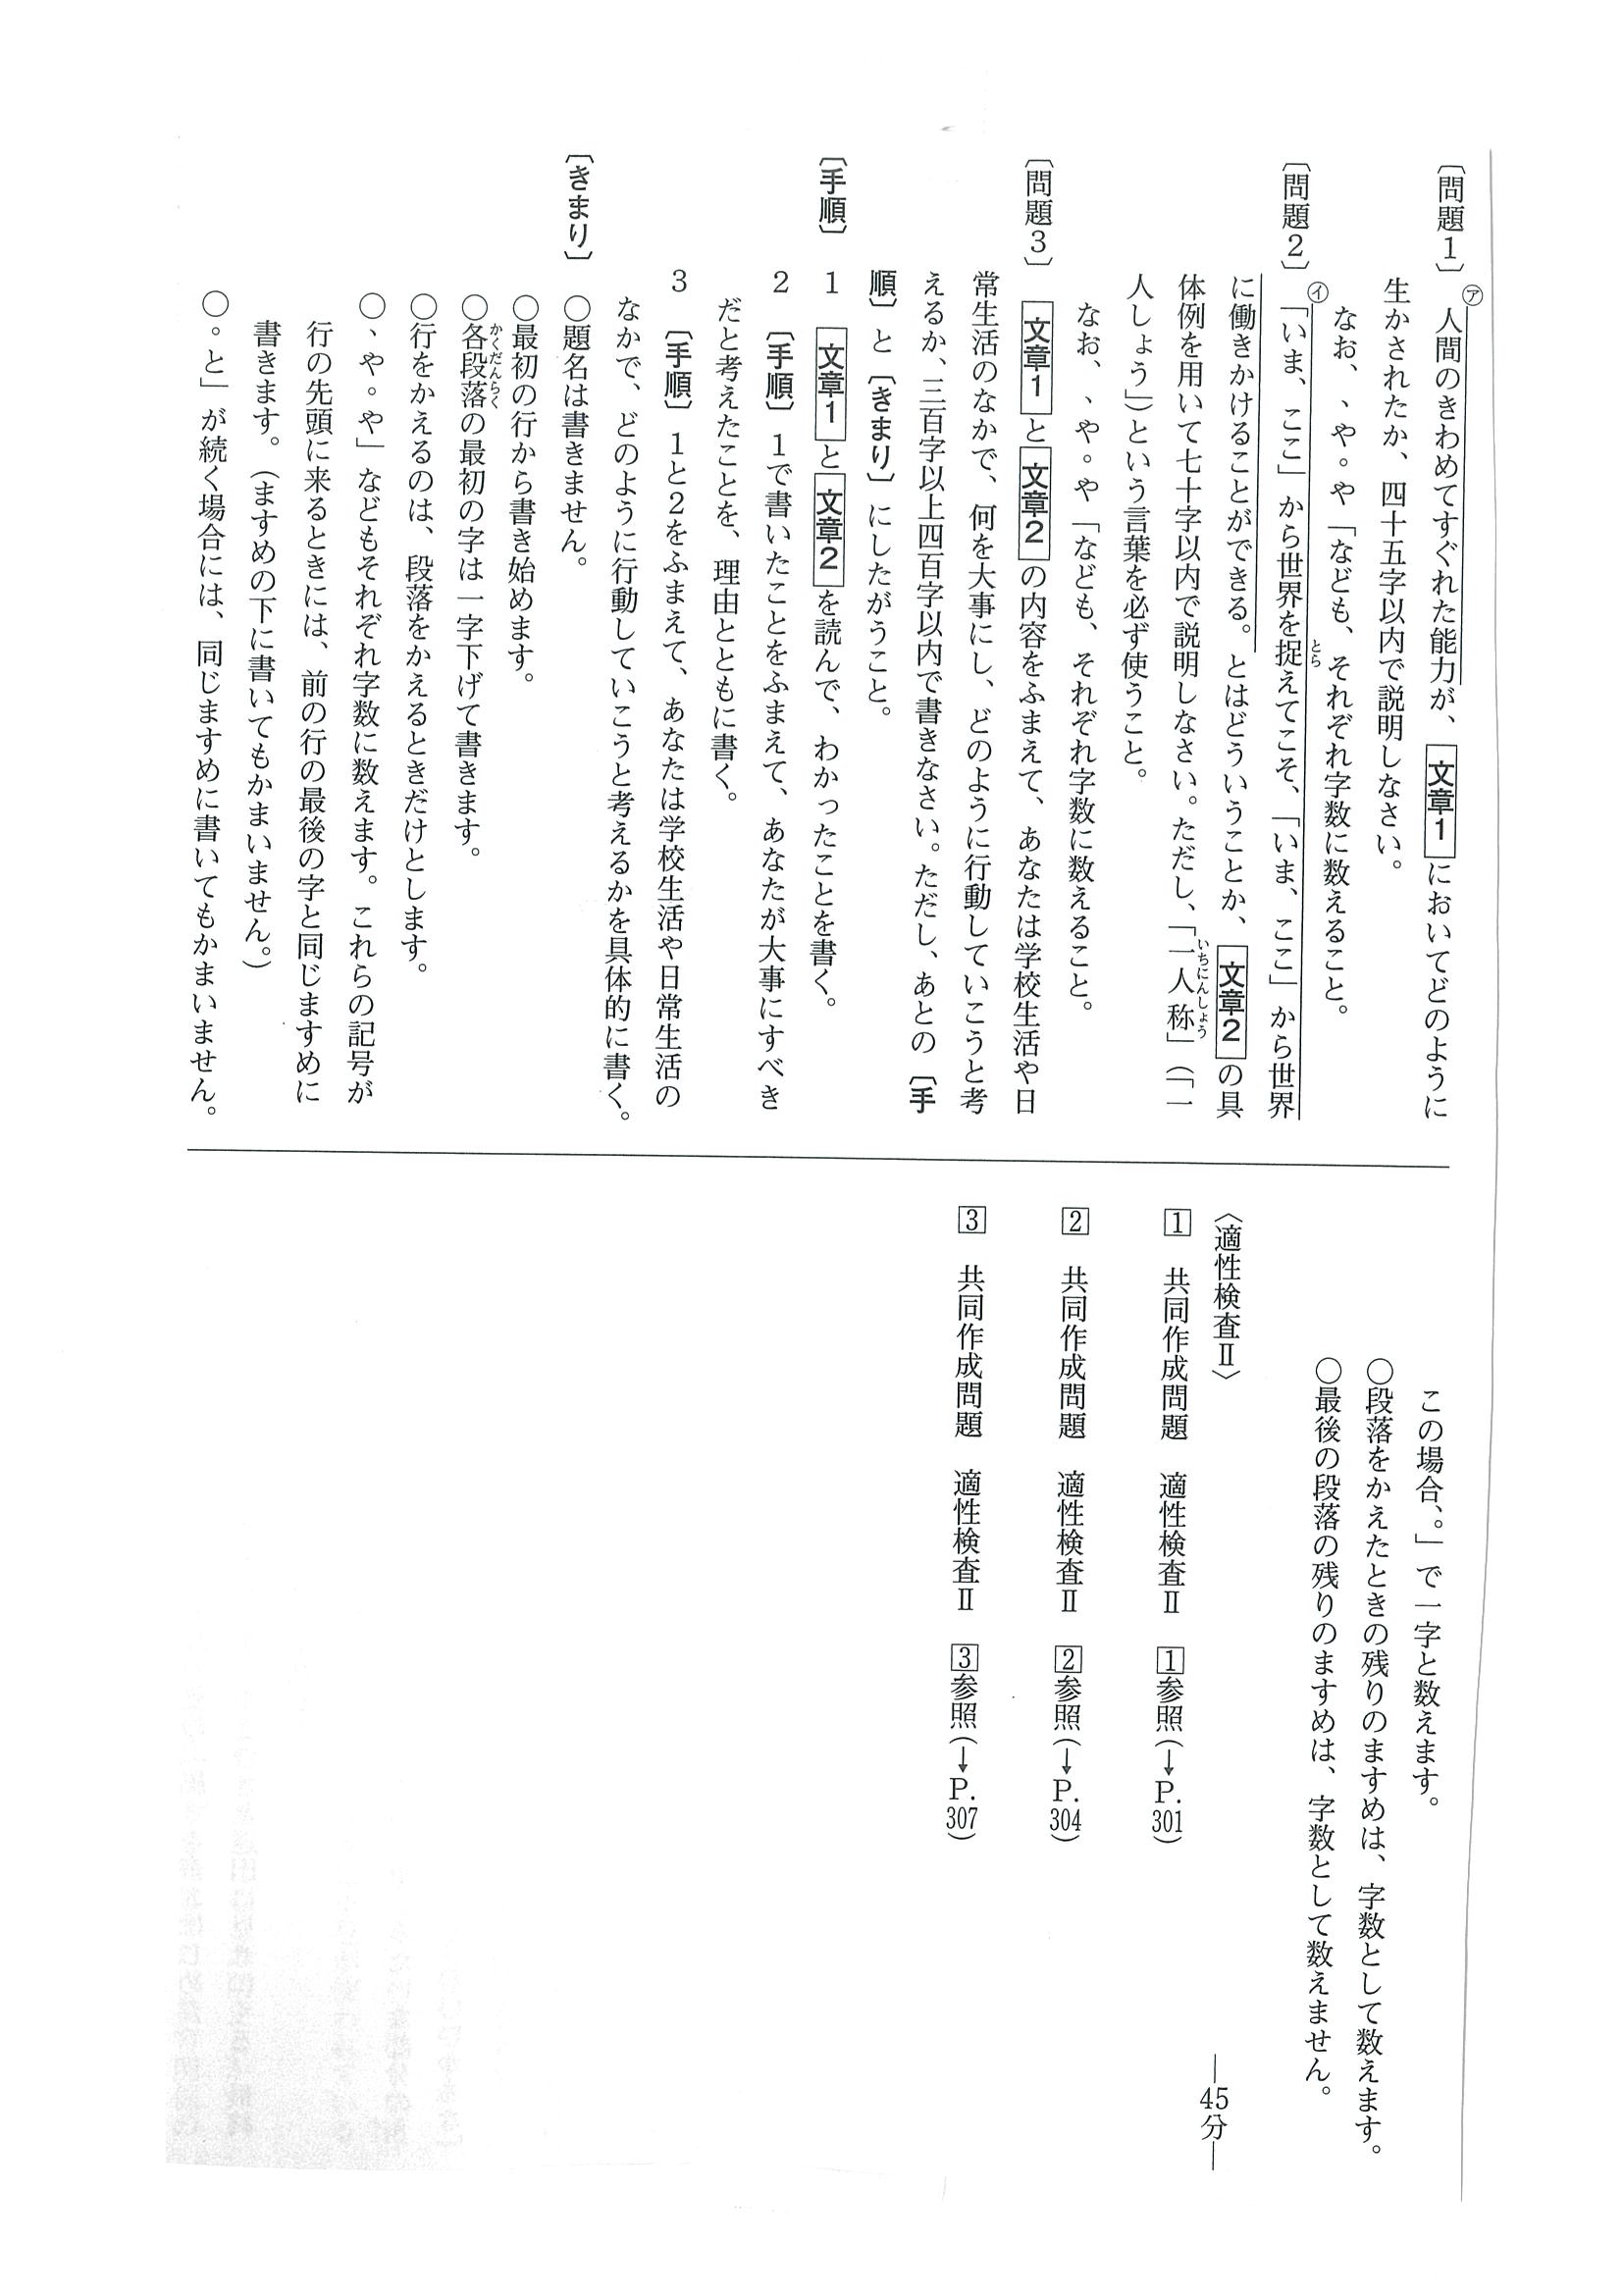 〔問題1〕㋐人間のきわめてすぐれた能力が、文章1においてどのように
生かされたか、四十五字以内で説明しなさい。
なお、、や。や「なども、それぞれ字数に数えること。
〔問題2〕㋑「いま、ここ」から世界を捉えてこそ、「いま、ここ」から世界
に働きかけることができる。とはどういうことか、文章2の具
体例を用いて七十字以内で説明しなさい。ただし、「一人称」(「一
人しょう」)という言葉を必ず使うこと。
なお、、や。や「なども、それぞれ字数に数えること。
〔問題3〕文章1と文章2の内容をふまえて、あなたは学校生活や日
常生活のなかで、何を大事にし、どのように行動していこうと考
えるか、三百字以上四百字以内で書きなさい。ただし、あとの〔手
順〕と〔きまり〕にしたがうこと。
〔手順〕1 文章1と文章2を読んで、わかったことを書く。
2 〔手順〕1で書いたことをふまえて、あなたが大事にすべき
だと考えたことを、理由とともに書く。
3 〔手順〕1と2をふまえて、あなたは学校生活や日常生活の
なかで、どのように行動していこうと考えるかを具体的に書く。
〔きまり〕○題名は書きません。
○最初の行から書き始めます。
○各段落の最初の字は一字下げて書きます。
○行をかえるのは、段落をかえるときだけとします。
○、や。や」などもそれぞれ字数に数えます。これらの記号が
行の先頭に来るときには、前の行の最後の字と同じますめに
書きます。(ますめの下に書いてもかまいません。)
○。と」が続く場合には、同じますめに書いてもかまいません。
この場合、。」で一字と数えます。
○段落をかえたときの残りのますめは、字数として数えます。
○最後の段落の残りのますめは、字数として数えません。
―45分―
〈適性検査Ⅱ〉
1 共同作成問題 適性検査Ⅱ 1参照(→P.301)
2 共同作成問題 適性検査Ⅱ 2参照(→P.304)
3 共同作成問題 適性検査Ⅱ 3参照(→P.307)